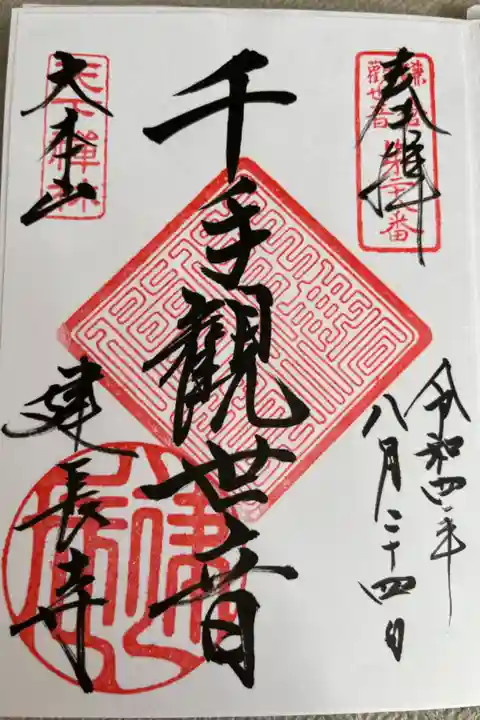 奉拝
鎌倉観世音第二十八番
令和四年
八月二十四日
千手観世音
天下禅林
大本山
建長寺